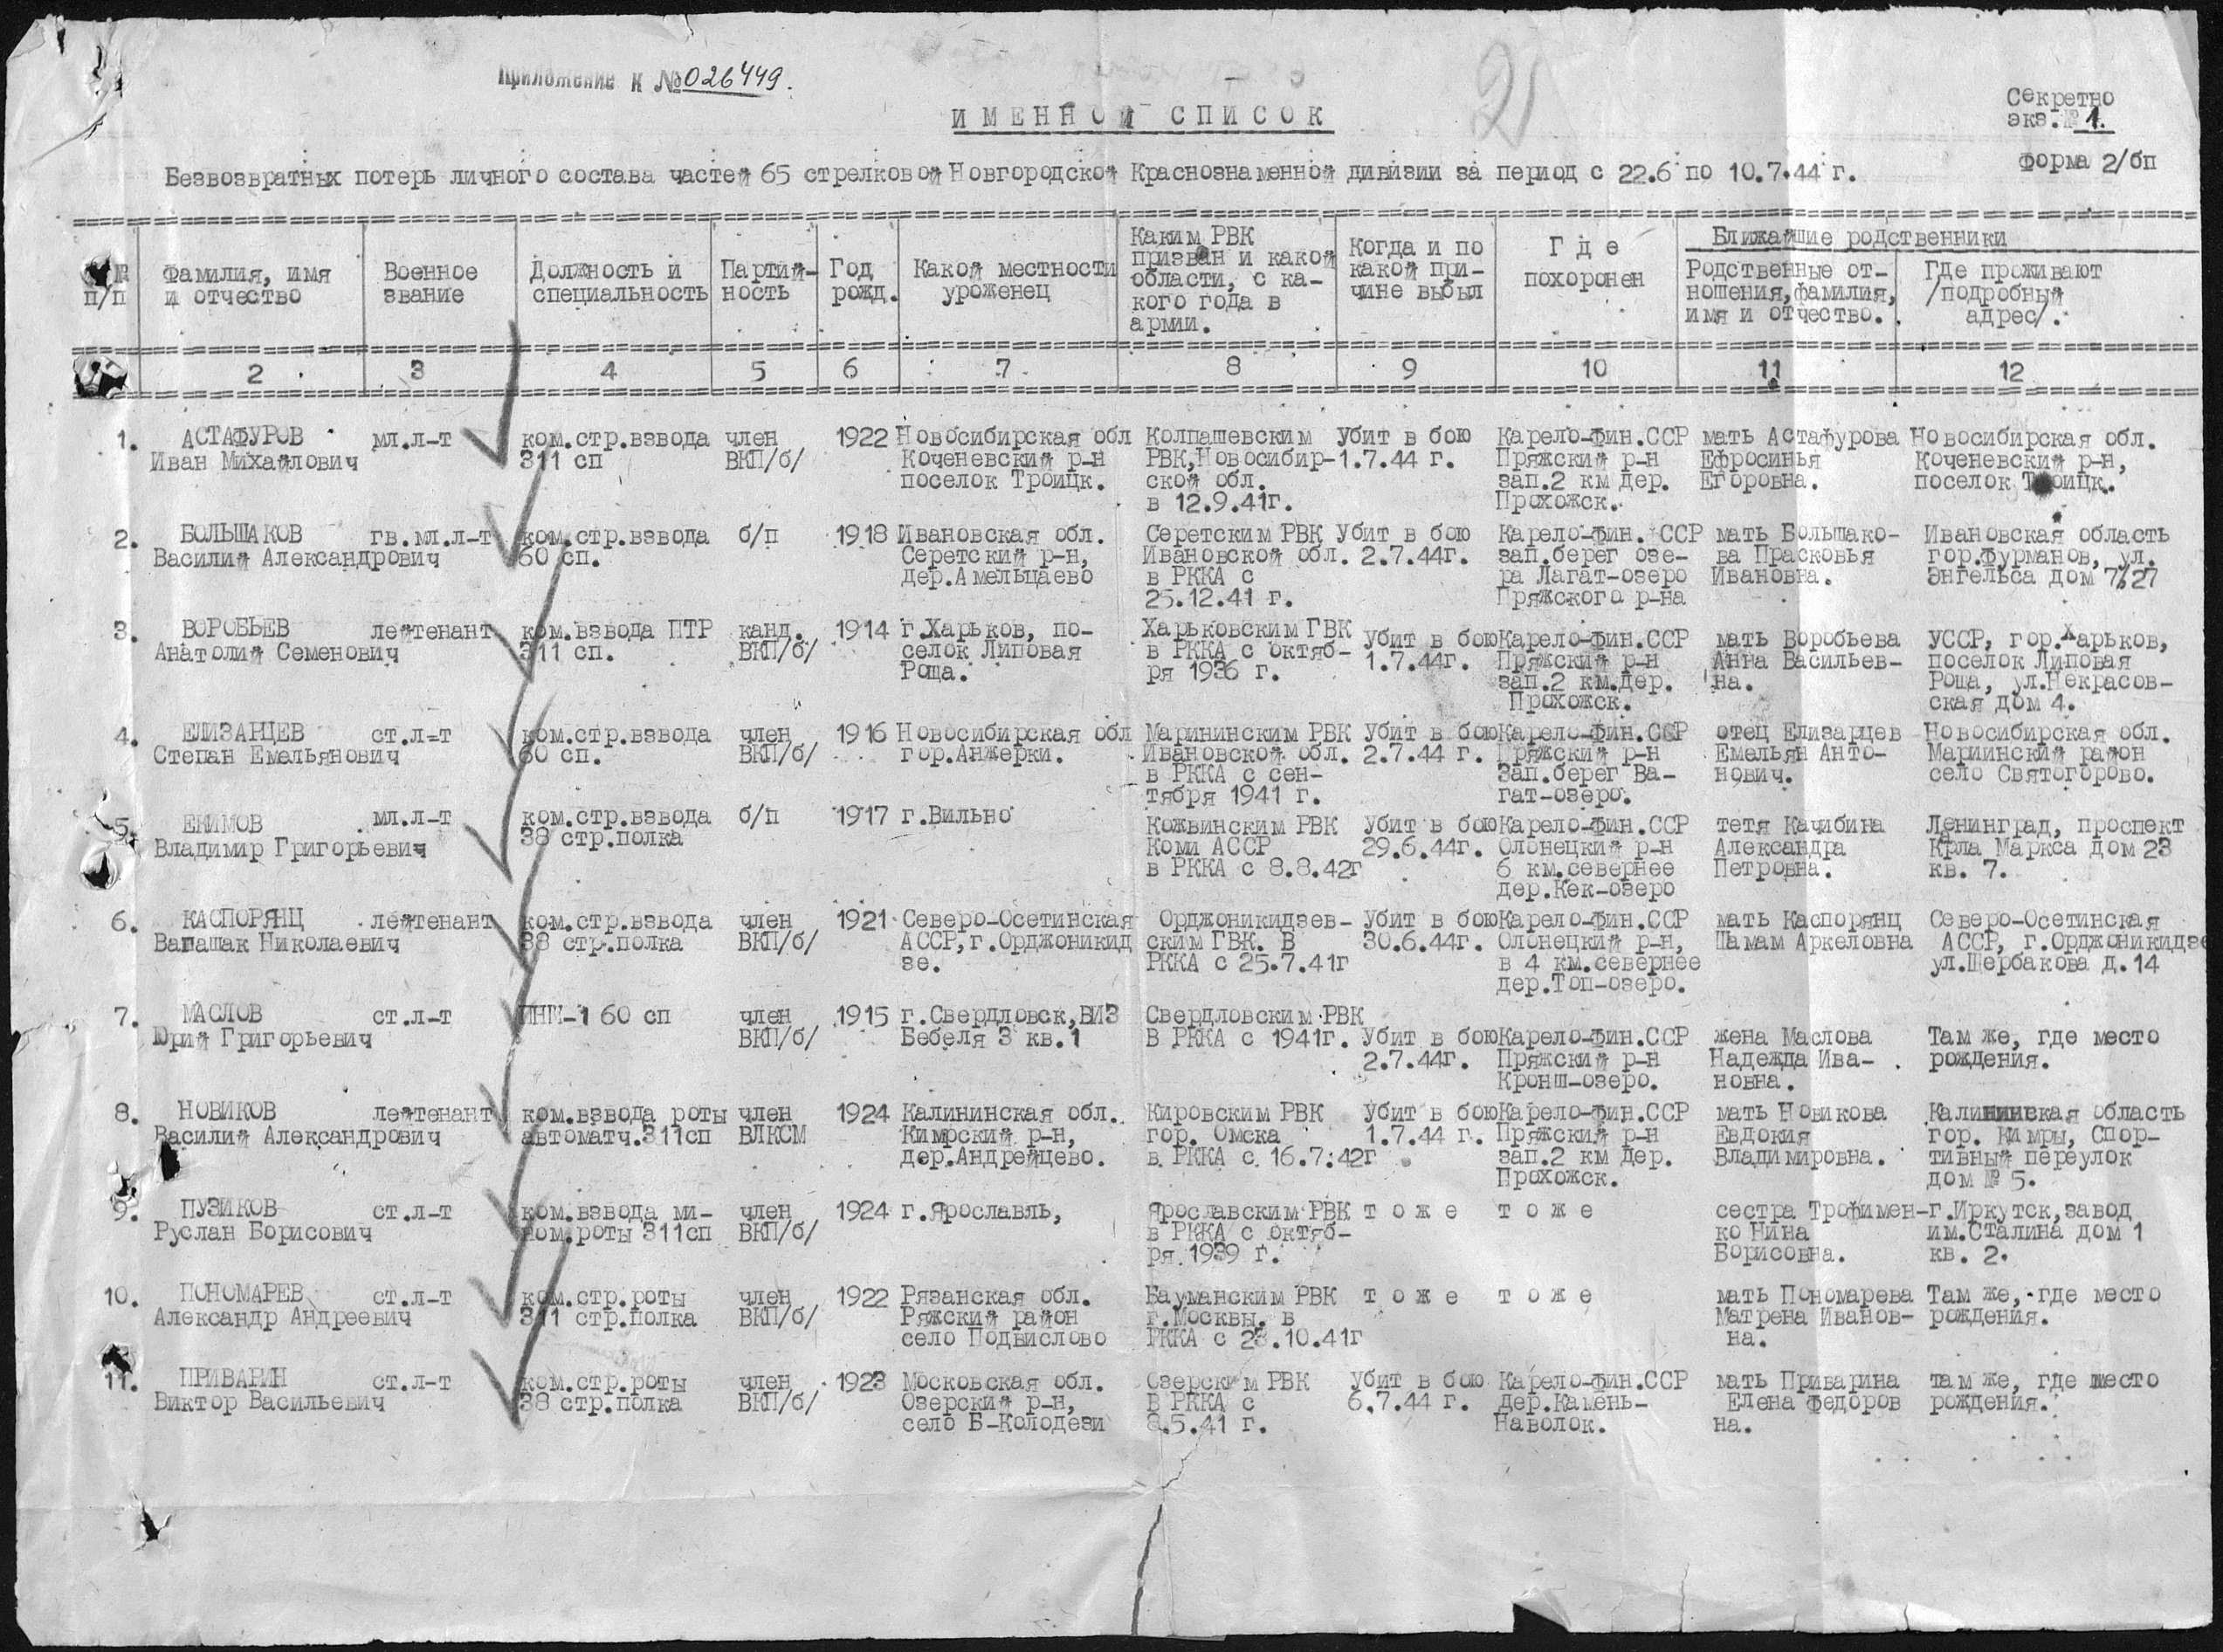 Приложение к № 026449.
21
Секретно
экз.№ 1.
ИМЕННОЙ СПИСОК
форма 2/бп
Безвозвратных потерь личного состава частей 65 стрелковой Новгородской Краснознаменной дивизии за период с 22.6 по 10.7.44 г.
№ п/п
Фамилия, имя
и отчество
Военное
звание
Должность и
специальность
Партий-
ность
Год
рожд.
Какой местности
уроженец
Каким РВК
призван и какой
области, с ка-
кого года в
армии.
Когда и по
какой при-
чине выбыл
Где
похоронен
Ближайшие родственники
Родственные от-
ношения, фамилия,
имя и отчество.
Где проживают
/подробный
адрес/.
2 3 4 5 6 7 8 9 10 11 12
1. АСТАФУРОВ мл.л-т ком.стр.взвода член 1922 Новосибирская обл Колпашевским Убит в бою Карело-фин.ССР мать Астафурова Новосибирская обл.
Иван Михайлович 311 сп ВКП/б/ Коченевский р-н РВК,Новосибир- 1.7.44 г. Пряжский р-н Ефросинья Коченевский р-н,
поселок Троицк. ской обл. зап.2 км дер. Егоровна. поселок Троицк.
в 12.9.41г. Прохожск.
2. БОЛЬШАКОВ гв.мл.л-т ком.стр.взвода б/п 1918 Ивановская обл. Серетским РВК Убит в бою Карело-фин. ССР мать Большако- Ивановская область
Василий Александрович 60 сп. Серетский р-н, Ивановской обл. 2.7.44г. зап.берег озе- ва Прасковья гор.Фурманов, ул.
дер.Амельцаево в РККА с ра Лагат-озеро Ивановна. Энгельса дом 7/27
25.12.41 г. Пряжского р-на
3. ВОРОБЬЕВ лейтенант ком.взвода ПТР канд. 1914 г.Харьков, по- Харьковским ГВК Убит в бою Карело-фин.ССР мать Воробьева УССР, гор.Харьков,
Анатолий Семенович 311 сп. ВКП/б/ селок Липовая в РККА с октяб- 1.7.44г. Пряжский р-н Анна Васильев- поселок Липовая
Роща. ря 1936 г. зап.2 км.дер. на. Роща, ул.Некрасов-
Прохожск. ская дом 4.
4. ЕЛИЗАНЦЕВ ст.л-т ком.стр.взвода член 1916 Новосибирская обл Марининским РВК Убит в бою Карело-фин.ССР отец Елизарцев Новосибирская обл.
Степан Емельянович 60 сп. ВКП/б/ гор.Анжерки. Ивановской обл. 2.7.44 г. Пряжский р-н Емельян Анто- Мариинский район
в РККА с сен- Зап.берег Ва- нович. село Святогорово.
тября 1941 г. гат-озеро.
5. ЕКИМОВ мл.л-т ком.стр.взвода б/п 1917 г.Вильно Кожвинским РВК Убит в бою Карело-фин.ССР тетя Качибина Ленинград, проспект
Владимир Григорьевич 38 стр.полка Коми АССР 29.6.44г. Олонецкий р-н Александра Карла Маркса дом 23
в РККА с 8.8.42г 6 км.севернее Петровна. кв. 7.
дер.Кек-озеро
6. КАСПОРЯНЦ лейтенант ком.стр.взвода член 1921 Северо-Осетинская Орджоникидзев- Убит в бою Карело-фин.ССР мать Каспорянц Северо-Осетинская
Вагашак Николаевич 38 стр.полка ВКП/б/ АССР, г.Орджоникид ским ГВК. В 30.6.44г. Олонецкий р-н, Шамам Аркеловна АССР, г.Орджоникидзе
зе. РККА с 25.7.41г в 4 км.севернее ул.Щербакова д.14
дер.Топ-озеро.
7. МАСЛОВ ст.л-т ПНШ-1 60 сп член 1915 г.Свердловск,ВИЗ Свердловским РВК
Юрий Григорьевич ВКП/б/ Бебеля 3 кв.1 В РККА с 1941г. Убит в бою Карело-фин.ССР жена Маслова Там же, где место
2.7.44г. Пряжский р-н Надежда Ива- рождения.
Кронш-озеро. новна.
8. НОВИКОВ лейтенант ком.взвода роты член 1924 Калининская обл. Кировским РВК Убит в бою Карело-фин.ССР мать Новикова Калининская область
Василий Александрович автоматч.311сп ВЛКСМ Кимрский р-н, гор. Омска 1.7.44 г. Пряжский р-н Евдокия гор. Кимры, Спор-
дер.Андрейцево. в РККА с 16.7.42г зап.2 км дер. Владимировна. тивный переулок
Прохожск. дом № 5.
9. ПУЗИКОВ ст.л-т ком.взвода ми- член 1924 г.Ярославль, Ярославским РВК тоже тоже сестра Трофимен- г.Иркутск,завод
Руслан Борисович ном.роты 311сп ВКП/б/ в РККА с октяб- ко Нина им.Сталина дом 1
ря 1939 г. Борисовна. кв. 2.
10. ПОНОМАРЕВ ст.л-т ком.стр.роты член 1922 Рязанская обл. Бауманским РВК тоже тоже мать Пономарева Там же, где место
Александр Андреевич 311 стр.полка ВКП/б/ Ряжский район г.Москвы. в Матрена Иванов- рождения.
село Подвислово РККА с 23.10.41г на.
11. ПРИВАРИН ст.л-т ком.стр.роты член 1923 Московская обл. Озерским РВК Убит в бою Карело-фин.ССР мать Приварина там же, где место
Виктор Васильевич 38 стр.полка ВКП/б/ Озерский р-н, В РККА с 6.7.44 г. дер.Камень- Елена Федоров рождения.
село Б-Колодези 8.5.41 г. Наволок. на.